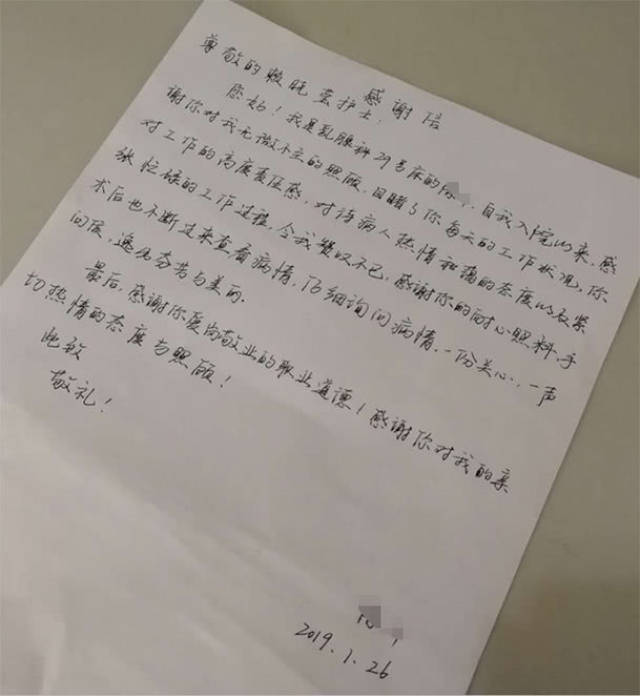 感谢信
尊敬的 护士:
您好!我是乳腺科29号床的 ,自我入院以来,感
谢你对我无微不至的照顾,目睹了你每天的工作状况,你
对工作的高度责任感,对待病人热情和蔼的态度以及紧
张忙碌的工作过程,令我赞叹不已,感谢你的耐心照料,手
术后也不断过来查看病情,仔细询问病情,一份关心,一声
问候,透出芬芳与美丽.
最后,感谢你爱岗敬业的职业道德!感谢你对我的亲
切热情的态度与照顾!
此致
敬礼!
2019.1.26